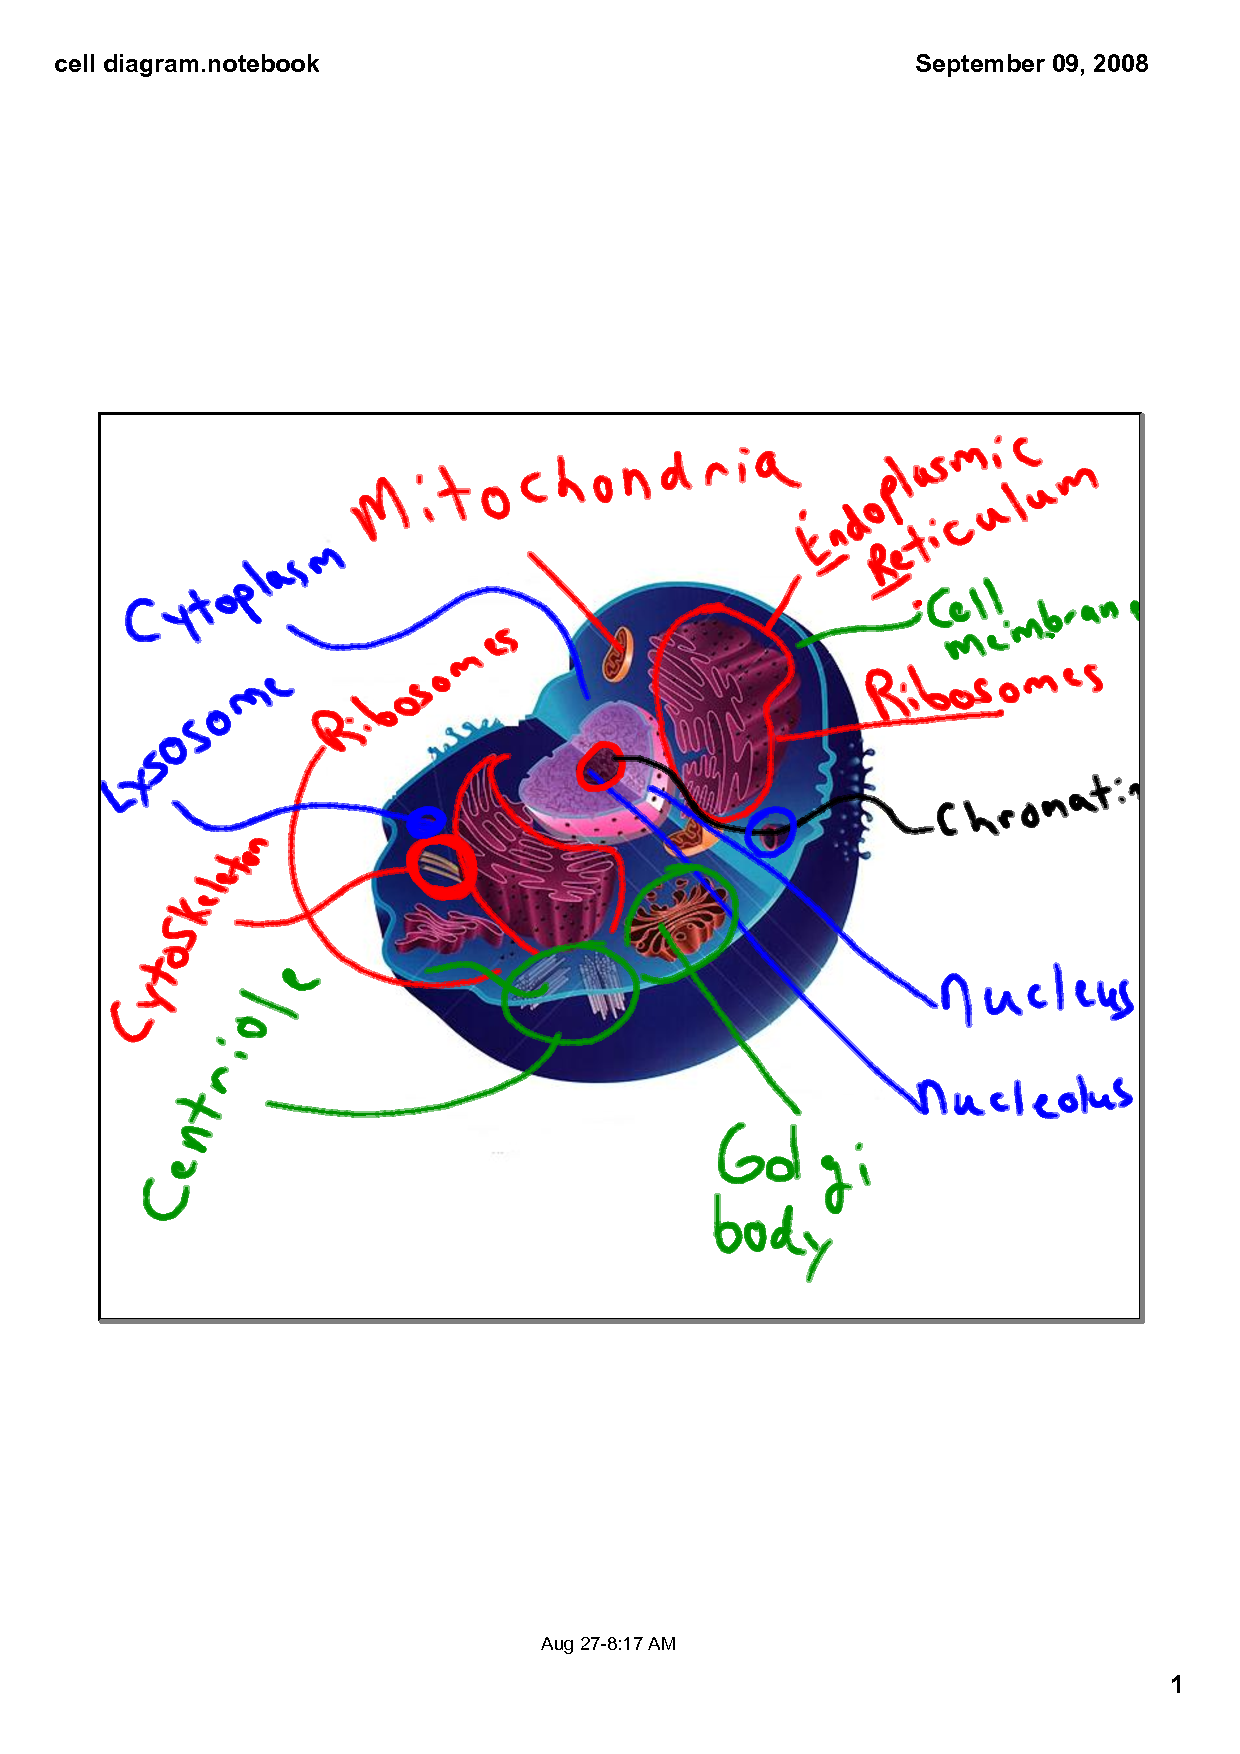 cell diagram.notebook
September 09, 2008
Mitochondria
Endoplasmic
Reticulum
Cytoplasm
Cell
membrane
Ribosomes
Ribosomes
Lysosome
Chromatin
Cytoskeleton
Nucleus
Centriole
Nucleolus
Golgi
body
Aug 27-8:17 AM
1